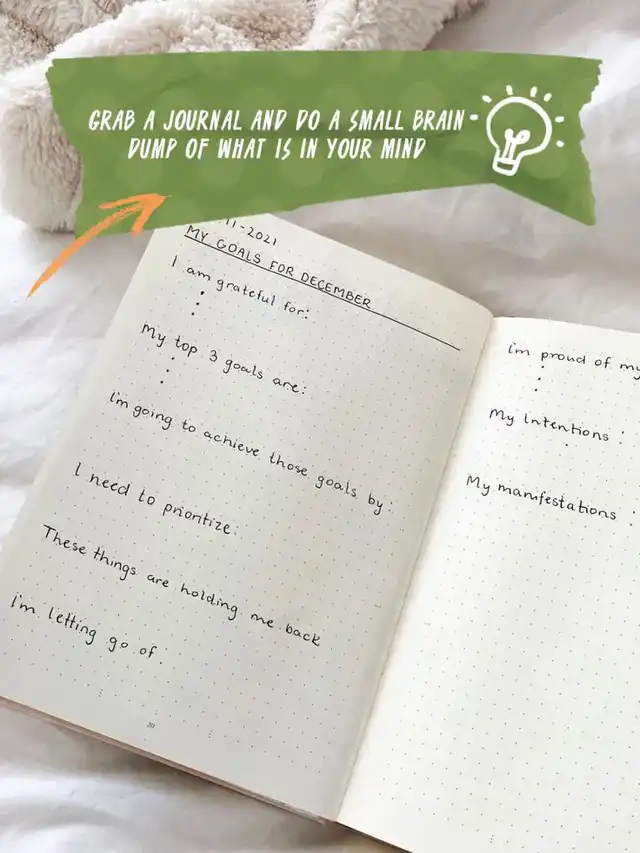 GRAB A JOURNAL AND DO A SMALL BRAIN
DUMP OF WHAT IS IN YOUR MIND
11-2021
MY GOALS FOR DECEMBER
I am grateful for:
My top 3 goals are:
I'm going to achieve those goals by:
I need to prioritize:
These things are holding me back
I'm letting go of:
20
I'm proud of my
My Intentions:
My manifestations: